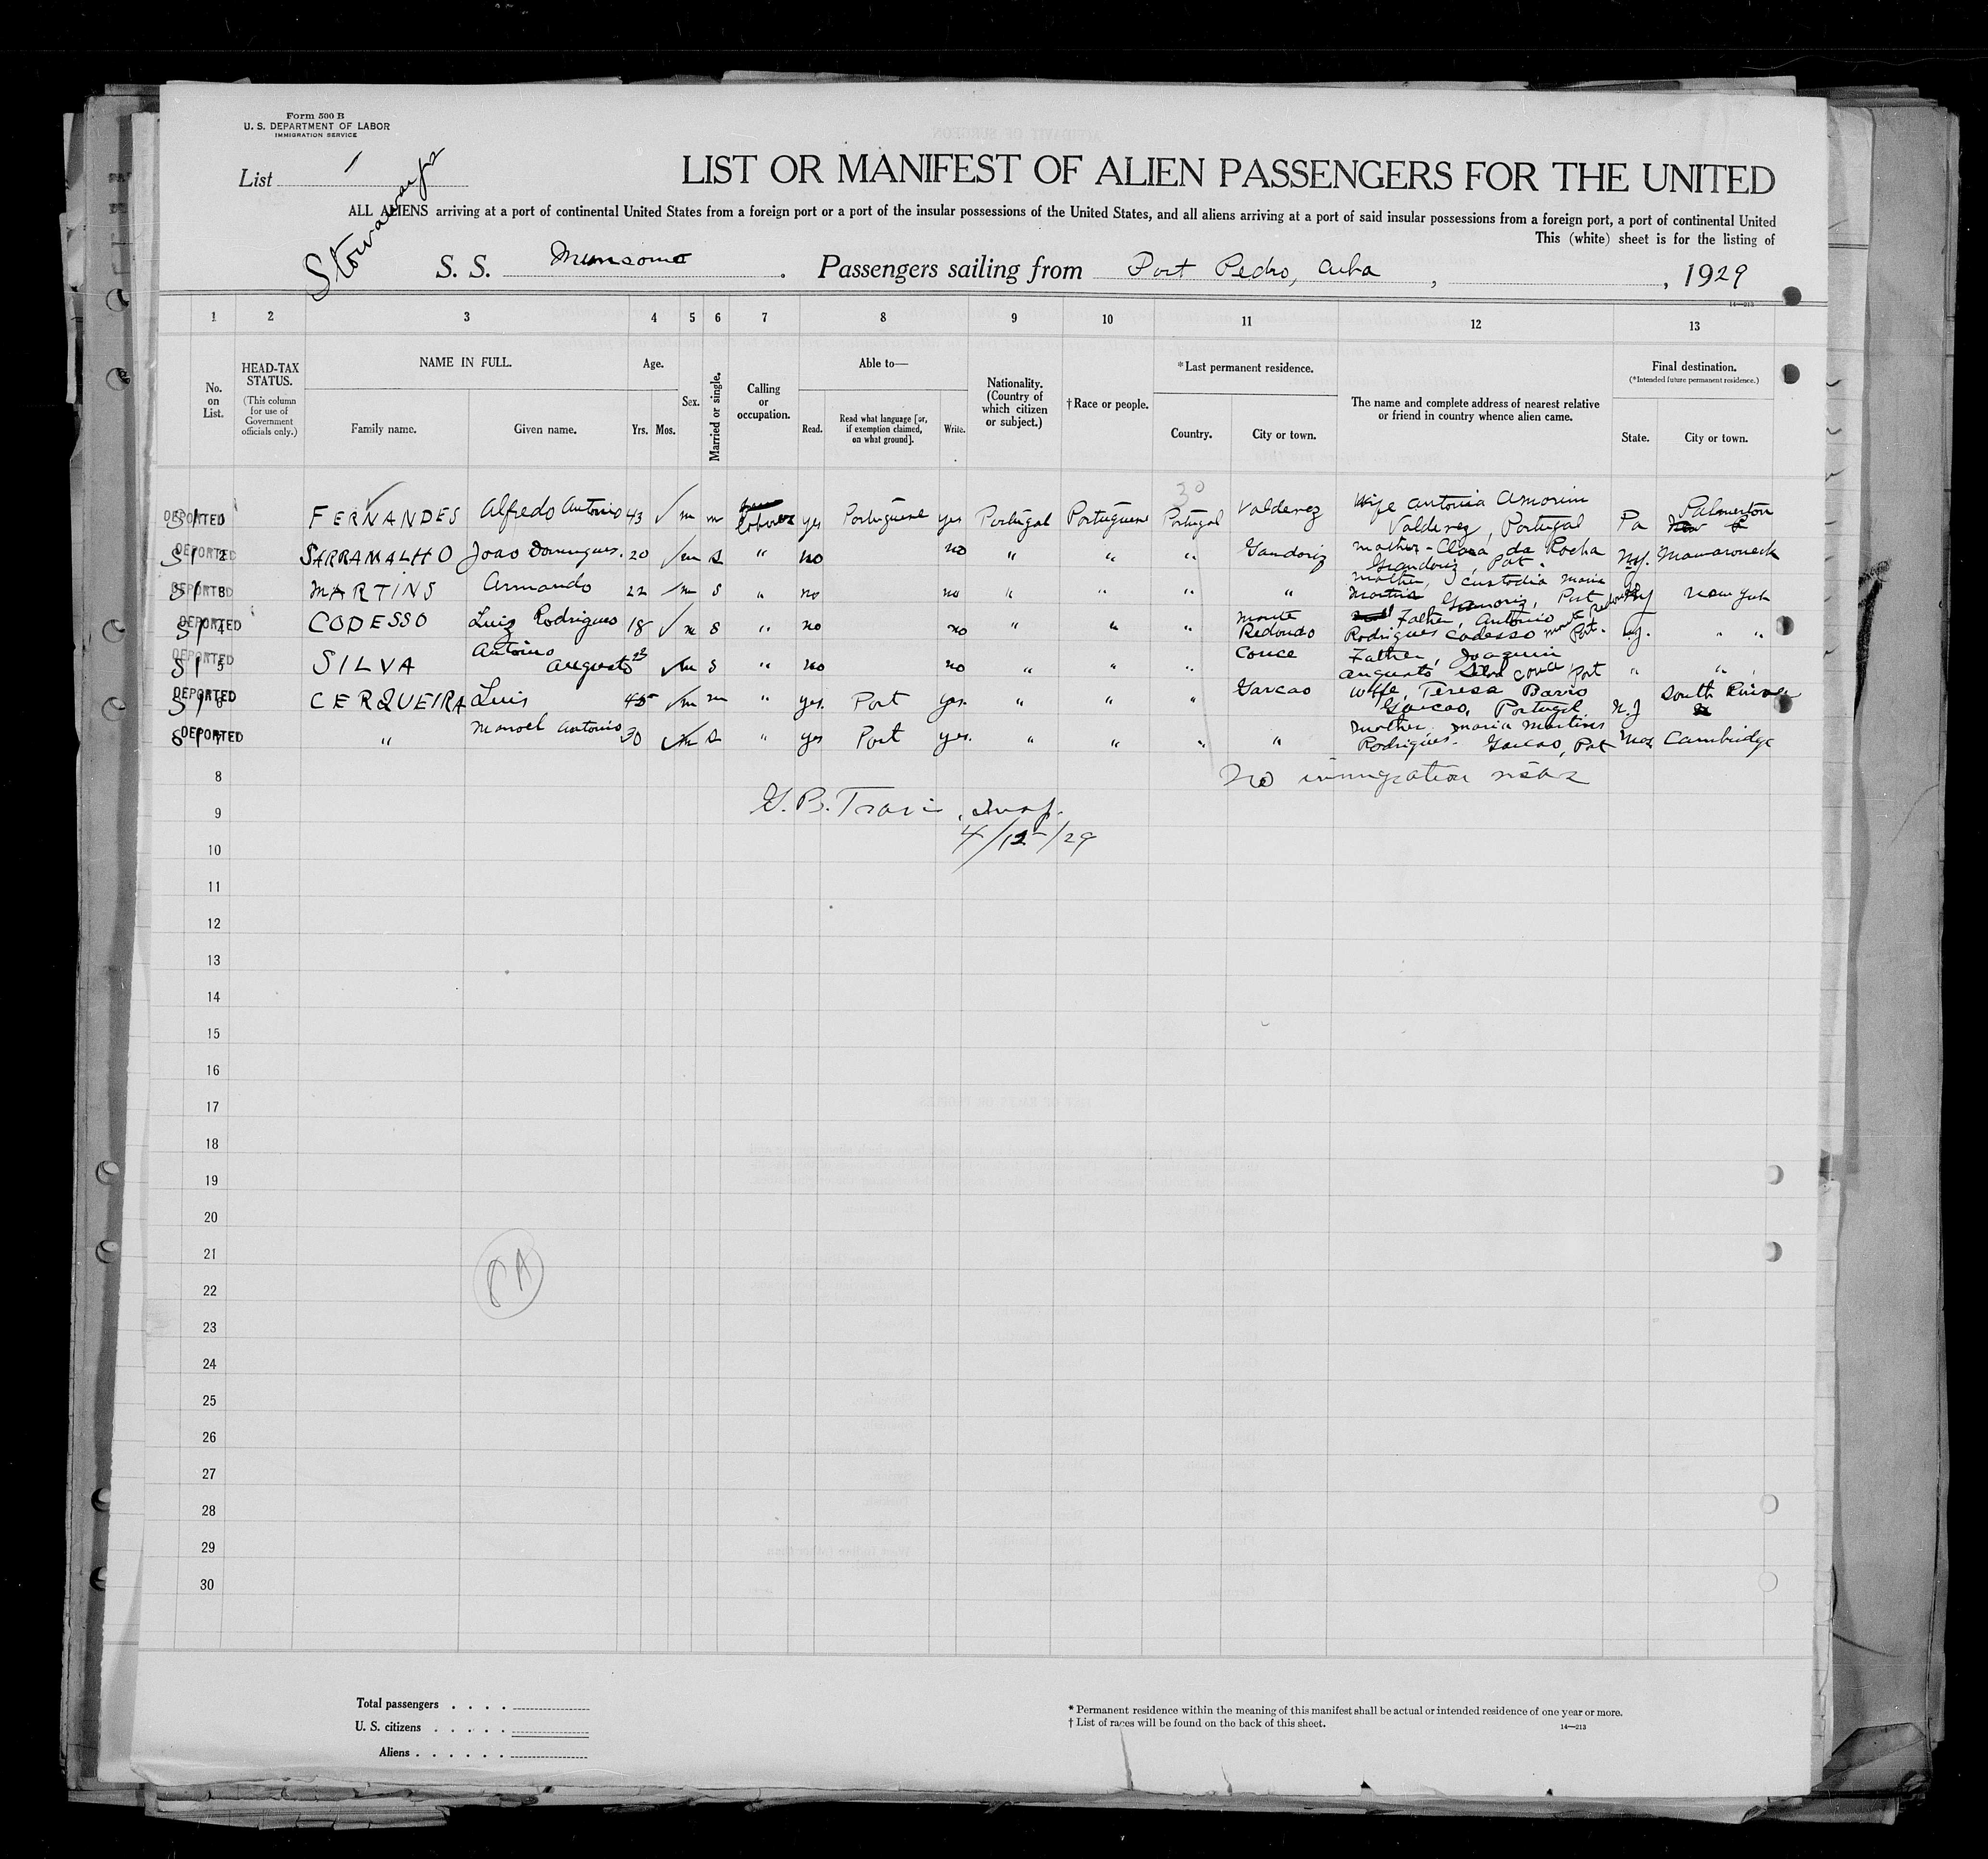 Form 500 B
U. S. DEPARTMENT OF LABOR
IMMIGRATION SERVICE
List 1
Stowaways
LIST OR MANIFEST OF ALIEN PASSENGERS FOR THE UNITED
ALL ALIENS arriving at a port of continental United States from a foreign port or a port of the insular possessions of the United States, and all aliens arriving at a port of said insular possessions from a foreign port, a port of continental United
This (white) sheet is for the listing of
S. S. Munsomo . Passengers sailing from Port Pedro, Cuba , , 1929
14—213
1 2 3 4 5 6 7 8 9 10 11 12 13
No. on List.
HEAD-TAX STATUS.
(This column for use of Government officials only.)
NAME IN FULL.
Family name. Given name.
Age.
Yrs. Mos.
Sex.
Married or single.
Calling or occupation.
Able to—
Read. Read what language [or, if exemption claimed, on what ground]. Write.
Nationality. (Country of which citizen or subject.)
† Race or people.
* Last permanent residence.
Country. City or town.
The name and complete address of nearest relative or friend in country whence alien came.
Final destination.
(* Intended future permanent residence.)
State. City or town.
30
DEPORTED S 1 1 FERNANDES Alfredo Antonio 43 m m laborer yes Portuguese yes Portugal Portuguese Portugal Valderez Wife Antonia Amorim Valderez, Portugal Pa Palmerton
DEPORTED S 1 2 SARRAMALHO Joao Domingues. 20 m s " no no " " " Gandoriz mother - Clara da Rocha Giandoriz, Port. N.Y. Mamaroneck
DEPORTED S 1 3 MARTINS Armando 22 m s " no no " " " " mother, Custodia Maria Martins Port NY New York
DEPORTED S 1 4 CODESSO Luiz Rodrigues 18 m s " no no " " " Monte Redondo Father, Antonio Rodrigues Codesso Monte Redondo Port. N.Y. " "
DEPORTED S 1 5 SILVA Antoino Augusto 23 m s " no no " " " Couce Father, Joaquin Augusto Silva Couce Port " " "
DEPORTED S 1 6 CERQUEIRA Luis 45 m m " yes. Port yes. " " " Garcao Wife, Teresa Bario Garcao, Portugal N.J South River
DEPORTED S 1 7 " Manoel Antonio 30 m s " yes Port yes. " " " " mother. Maria Martins Rodrigues. Garcao, Port Mas Cambridge
8 No immigration visas
9 G. B. Travis, Insp.
4/12/29
10
11
12
13
14
15
16
17
18
19
20
21
22
23
24
25
26
27
28
29
30
Total passengers . . . .
U. S. citizens . . . . .
Aliens . . . . . .
* Permanent residence within the meaning of this manifest shall be actual or intended residence of one year or more.
† List of races will be found on the back of this sheet.
14—213